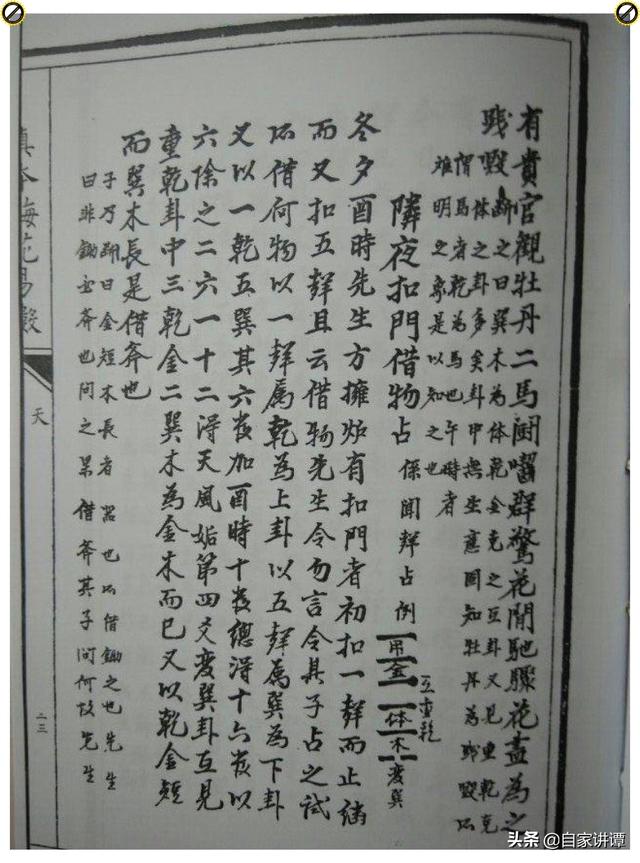 有貴官觀牡丹二馬闘囓群驚花間馳驟花盡為之
践毀
斷之曰巽木為体乾金克之互卦又見重乾克
体之卦多矣卦中無生意固知牡丹為踐毀所
謂馬者乾為馬也午時者
離明之象是以知之也
隣夜扣門借物占 係聞聲占例
用金
体木
互重乾
変巽
冬夕酉時先生方擁炉有扣門者初扣一聲而止繼
而又扣五聲且云借物先生令勿言令其子占之試
所借何物以一聲属乾為上卦以五聲属巽為下卦
又以一乾五巽共六数加酉時十数總得十六数以
六除之二六一十二得天風姤第四爻変巽卦互見
重乾卦中三乾金二巽木為金木而已又以乾金短
而巽木長是借斧也
子乃斷曰金短木長者器也所借鋤之也先生
曰非鋤必斧也問之果借斧其子問何故先生
真本梅花易數
天
二三
头条 @自家讲谭